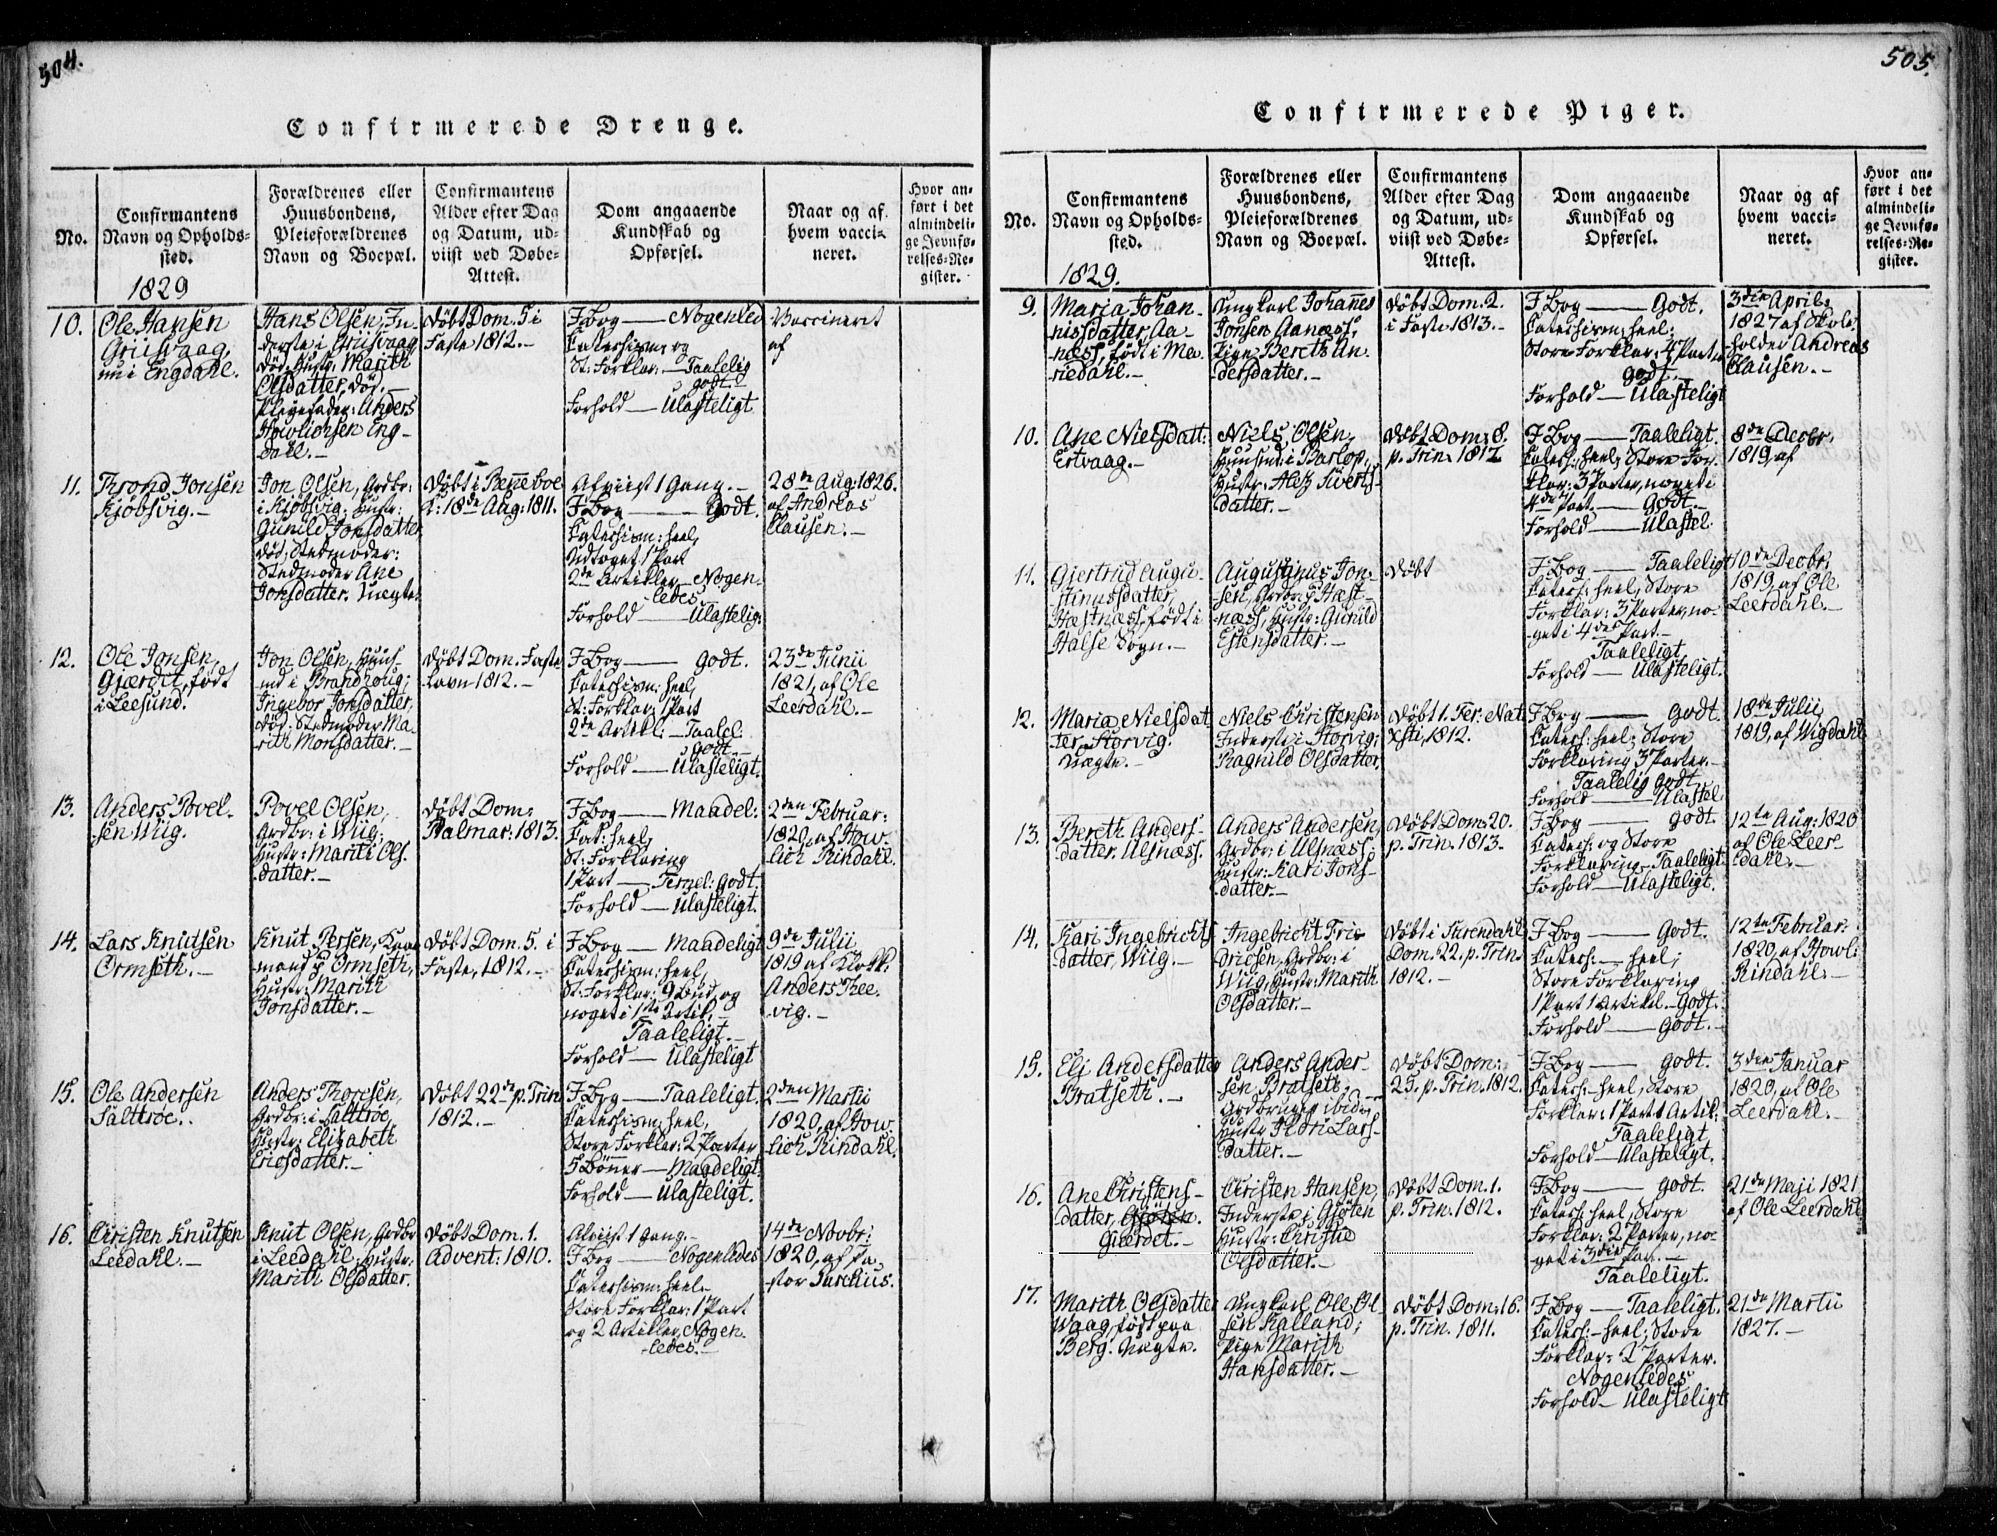 504.
Confirmerede Drenge.
No.
Confirmantens
Navn og Opholds-
sted.
1829
Forældrenes eller
Huusbondens,
Pleieforældrenes
Navn og Boepæl.
Confirmantens
Alder efter Dag
og Datum, ud-
viist ved Døbe-
Attest.
Dom angaaende
Kundskab og
Opførsel.
Naar og af
hvem vacci-
neret.
Hvor an-
ført i det
almindeli-
ge Jevnfø-
relses-Re-
gister.
10.
Ole Hansen
Griisvaag,
nu i Engdahl.
Hans Olsen, In-
derste i Griisvaag
død. Hustr: Marith
Olsdatter, død.—
Pleyefader: Anders
Eng-
dahl.—
Døbt Dom. 5 i
Faste 1812.—
F. Bog — Nogenled
Catechism: og
St: Forklar: — Taalelig
godt.
Forhold — Ulasteligt
Vaccineret
af
11.
Trond Jonsen
Kjøbsvig.—
Jon Olsen, Grdbr:
i Kjøbsvig; Hustr:
Gunild Jonsdatter
død; Stedmoder:
Stedmoder Ane
Jonsdatter. Uægte.
Døbt i Renneboe
K: 18de Aug: 1811.
Afviist 1 Gang.—
F. Bog — Godt.
Catechism: heel,
Udtoget 1 Part
2de Artikler — Nogen-
ledes.
Forhold — Ulastelig:
28de Aug: 1826.
af Andreas
Clausen.—
12.
Ole Jonsen,
Gjærdet, født
i Leesund.
Jon Olsen, Huus-
md i Brandhoug;
Ingebor Jonsdatter,
død: Stedmoder Ma-
rith Monsdatter.—
Døbt Dom. Faste
Lavn 1812.—
F. Bog — Godt.
Catechism: heel,
St: Forklar: 1 Part
2de Artikl: — Taalel:
godt.—
Forhold — Ulasteligt.
23de Junii
1821, af Ole
Leerdahl.—
13.
Anders Povel-
sen Wiig.
Povel Olsen,
Grdbr: i Wiig;
Hustr: Marith Ols-
datter.—
Døbt Dom:
Palmar: 1813.
F. Bog — Maadel:
Cat: heel,
St: Forklaring
1 Part — Temel: godt.
Forhold — Ulasteligt.
2den Februar:
1820, af How-
lich Rindahl.
14.
Lars Knutsen
Ormseth.—
Knut Persen,
mand p Ormseth,
Hustr: Marith
Jonsdatter.—
Døbt Dom. 5. i
Faste, 1812.—
F. Bog — Maadeligt
Catechism: heel,
St: Forklar: 9 Bud, og
noget i 1ste Artik:—
Taaleligt.—
Forhold — Ulasteligt
9de Julii
1819 af Klokk:
Anders Ree-
vig.—
15.
Ole Andersen
Salttrøe.
Anders Thoresen,
Grdbr: i Salttrøe,
Hustr: Elizabeth
Ericsdatter.—
Døbt 22de p. Trin
1812.—
F. Bog — Taaleligt.
Catechism: heel,
Store Forklar: 2 Parter
5 Bønner — Maadeligt.
Forhold — Ulasteligt.
2den Martii
1820, af How-
lich Rindahl.
16.
Christen Knutsen
Leedahl.—
Knut Olsen, Grdbr
i Leedahl; Hustr:
Marith Olsdatter.
Døbt Dom. 1.
Advent: 1810.
Afviist 1 Gang.—
F. Bog — Nogenledes
Catechism: heel.
Store Forklar: 1 Part
og 2 Artikler, Nogen-
ledes.—
14de Novbr:
1820, af Pa-
stor Parelius.
505.
Confirmerede Piger.
No.
Confirmantens
Navn og Opholds-
sted.
1829.
Forældrenes eller
Huusbondens,
Pleieforældrenes
Navn og Boepæl.
Confirmantens
Alder efter Dag
og Datum, ud-
viist ved Døbe-
Attest.
Dom angaaende
Kundskab og
Opførsel.
Naar og af
hvem vacci-
neret.
Hvor an-
ført i det
almindeli-
ge Jevnfø-
relses-Re-
gister.
9.
Maria Johan-
nisdatter, Aa-
næss, født i Ma-
riedahl.—
Ungkarl Johannes
Jonsen Aanæss,
Pige Bereth An-
dersdatter.—
Døbt Dom. 2.
i Faste 1813.—
F. Bog — Godt.
Catechism: heel;
Store Forklar: 4 Parter
godt.—
Forhold — Ulasteligt
3die April:
1827 af Skole-
holder Andreas
Clausen.—
10.
Ane Nielsdatt:
Ertvaag.—
Niels Olsen,
Huusmd: i Barlop,
Hustr: Alez Siverts-
datter.—
Døbt Dom: 8.
p. Trin. 1812.
F. Bog — Taaleligt.
Catech: heel; Store For-
klar: 3 Parter, noget i
4de Part. — Godt.—
Forhold — Ulastel.
8de Decbr:
1819, af
11.
Gjertrud Augu-
stinusdatter,
Hæstnæss, født i
Halse Sogn.—
Augustinus Jon-
sen, Grdbr: p Hæst-
næss, Hustr: Gunild
Estensdatter.—
Døbt
F. Bog — Taaleligt
Catech: heel, Store
Forklar: 3 Parter, no-
get i 4de Part.—
Taaleligt
Forhold — Ulasteligt.
10de Decbr:
1819, af Ole
Leerdahl.—
12.
Maria Nielsdat
ter Storvig.
Uægte.—
Niels Christensen
Inderste i Storvig;
Ragnild Olsdatter.
Døbt 1. Fer: Nat:
Xsti, 1812.
F. Bog — Godt.
Catech: heel; Store
Forklaring 3 Parter.—
Taalelig godt
Forhold — Ulastel
18de Julii
1819, af Wigdahl
13.
Bereth Anders-
datter, Ulsnæss.
Anders Andersen,
Grdbr: i Ulsnæss;
Hustr: Kari Jons-
datter.—
Døbt Dom: 20.
p. Trin. 1813.—
F. Bog — godt.
Catech: og Store
Forklaring — Taaleligt
Forhold — Ulasteligt.
12te Aug: 1820
af Ole Leer-
dahl.—
14.
Kari Ingebrichts
datter, Wiig.—
Ingebricht Fri-
dricsen, Grdbr: i
Wiig, Hustr: Marith
Olsdatter.—
Døbt i Surendahl
Dom. 22. p. Trin:
1812.—
F. Bog — Godt.
Catech: — heel;
Store Forklaring
1 Part 1 Artikel — Godt.
Forhold — Godt.—
12te Februar:
1820, af Howl:
Rindahl.—
15.
Eli Andersdatter
Bratseth.—
Anders Ander-
sen Bratseth,
Grdbruger ibid:,
Hustr Ildri Lars-
datter.—
Døbt Dom:
25. p. Trin. 1812.
F. Bog — godt.
Catech: — heel, Store
Forklar: 1 Part 1 Artik:
Taaleligt
Forhold — Ulasteligt.
3die Januar
1820, af Ole
Leerdahl.—
16.
Ane Christens-
datter, Gjøten.
Giærdet.—
Christen Hansen,
Inderste i Gjøten
Hustr: Christie
Olsdatter.—
Døbt Dom. 1.
p. Trin. 1812.
F. Bog — godt.
Catech: heel, Store
Forklar: 2 Parter, no-
get i 3die Par.—
Taaleligt.
21de Maji 1821
af Ole Leerdahl
17.
Marith Olsdatter
Waag, født paa
Berg. Uægte.
Ungkarl Ole Ol-
sen Kalland;
Pige Marith
Hansdatter.—
Døbt Dom: 16.
p. Trin. 1811.
F. Bog — Taaleligt.
Catech: — heel; Store
Forklar: 2 Parter.
Nogenledes
Forhold — Ulasteligt
21de Martii
1827.—